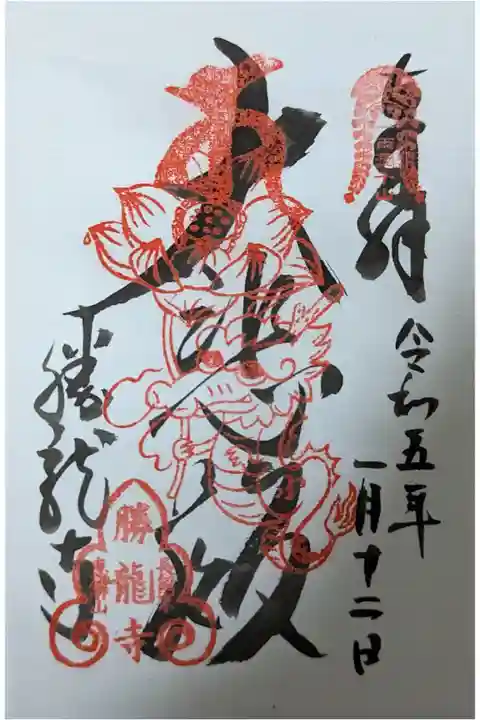 奉拝
令和五年
一月十二日
大悲殿
勝龍寺
勝龍寺